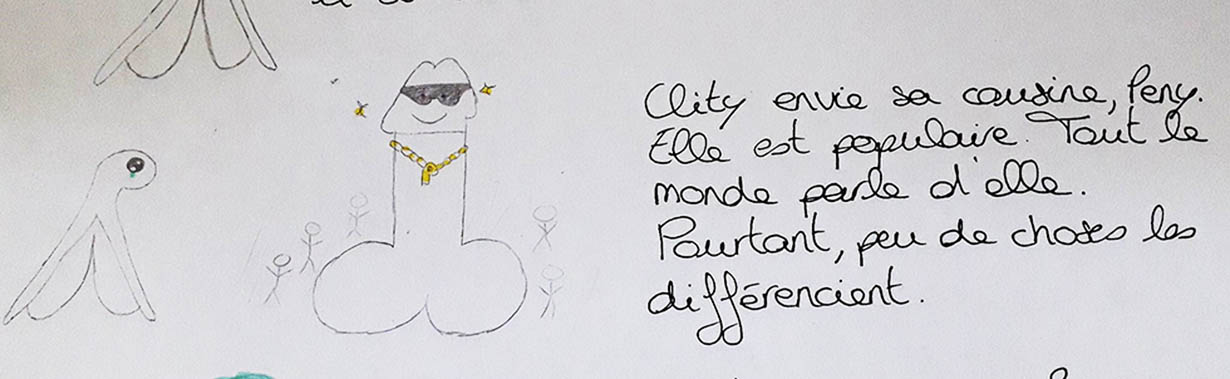 Clity envie sa cousine, Peny.
Elle est populaire. Tout le
monde parle d'elle.
Pourtant, peu de choses les
différencient.